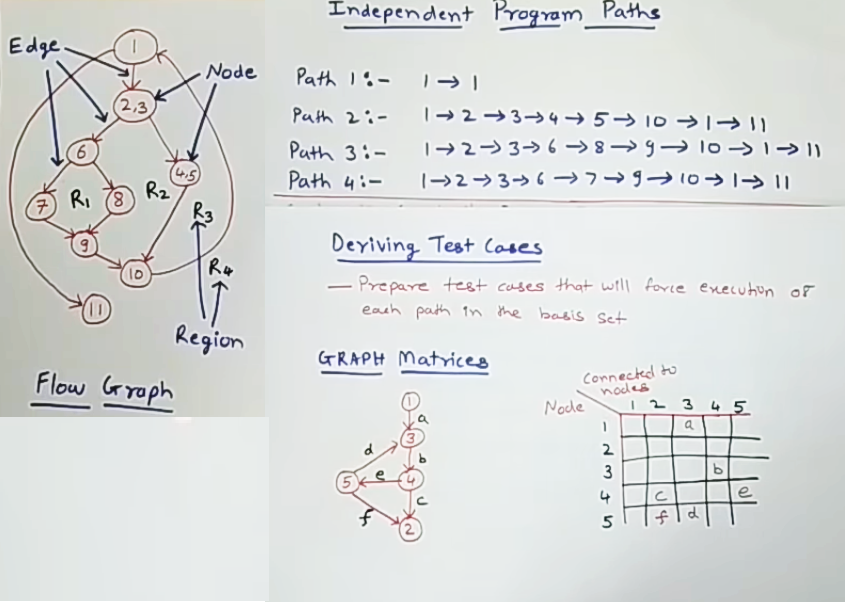 Edge
Node
1
2,3
6
4,5
7
R1
8
R2
R3
9
R4
10
11
Region
Flow Graph
Independent Program Paths
Path 1:- 1 → 1
Path 2:- 1 → 2 → 3 → 4 → 5 → 10 → 1 → 11
Path 3:- 1 → 2 → 3 → 6 → 8 → 9 → 10 → 1 → 11
Path 4:- 1 → 2 → 3 → 6 → 7 → 9 → 10 → 1 → 11
Deriving Test Cases
— Prepare test cases that will force execution of
each path in the basis set
GRAPH Matrices
1
a
3
d
b
5
e
4
c
f
2
Connected to
nodes
Node 1 2 3 4 5
1 a
2
3 b
4 c e
5 f d